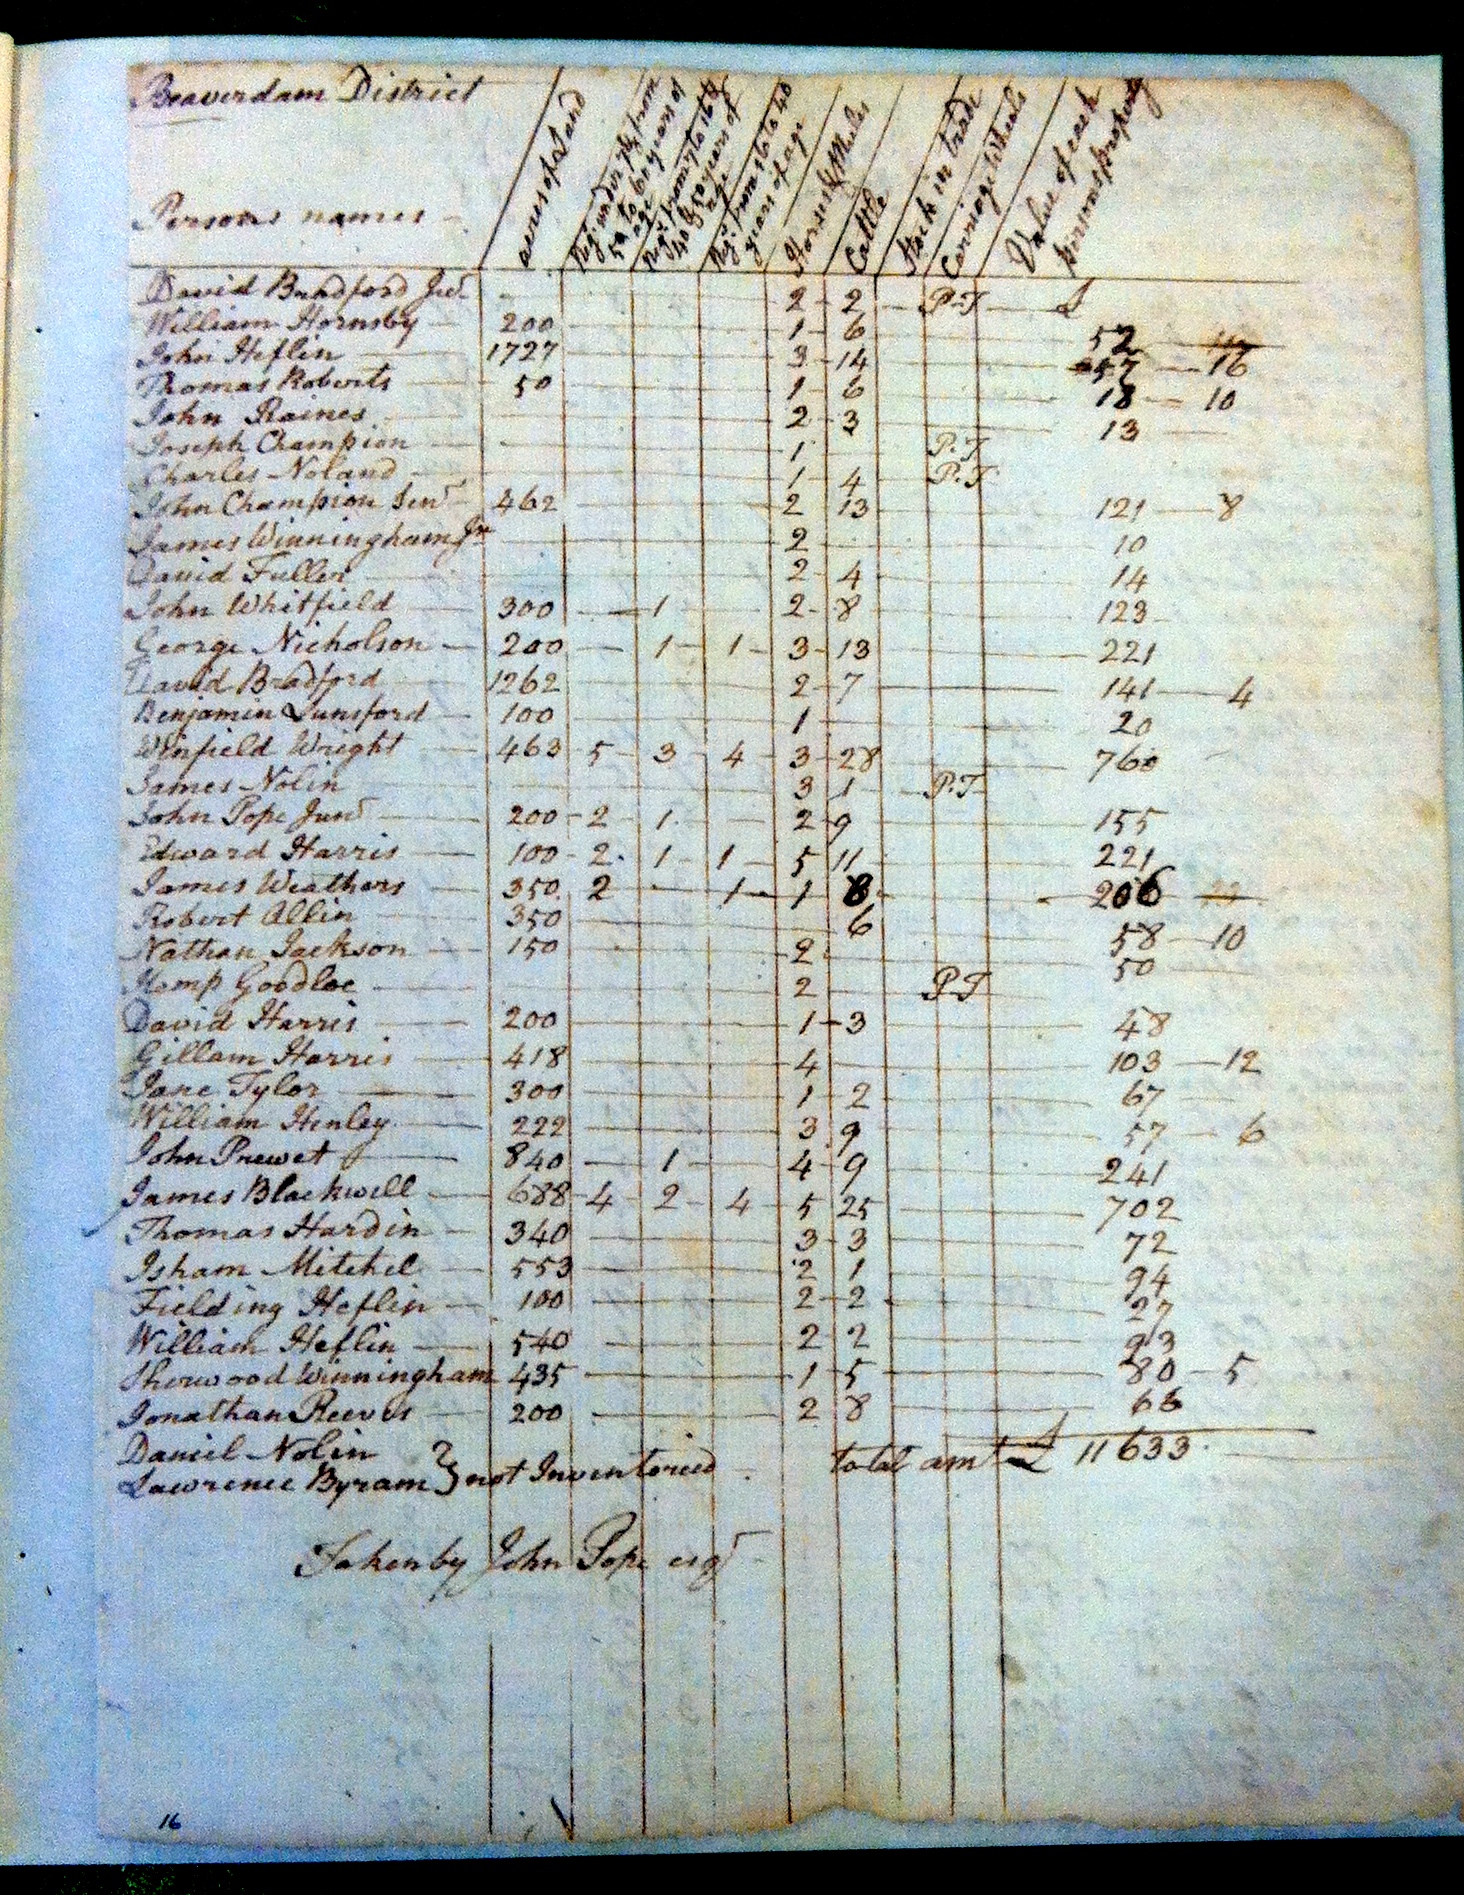 Beaverdam District
Persons names
acres of Land
Neg: under 7 & from 50 to 60 years of age
Negs: from 7 to 16 & 40 to 50 years of age
Neg: from 16 to 40 years of age
Horses & Mules
Cattle
Stock in trade
Carriage Wheels
Value of each persons property
David Bradford Junr 2 2 P.T £
William Hornsby 200 1 6 52
John Heflin 1727 3 14 257 16
Thomas Roberts 50 1 6 18 10
John Raines 2 3 13
Joseph Champion 1 P.T
Charles Noland 1 4 P.T
John Champion Senr 462 2 13 121 8
James Winningham Jn 2 10
David Fuller 2 4 14
John Whitfield 300 1 2 8 123
George Nicholson 200 1 1 3 13 221
David Bradford 1262 2 7 141 4
Benjamin Lunsford 100 1 20
Winfield Wright 463 5 3 4 3 28 760
James Nolin 3 1 P.T
John Pope Junr 200 2 1 2 9 155
Edward Harris 100 2 1 1 5 11 221
James Weathers 350 2 1 1 8 206
Robert Allin 350 6 58 10
Nathan Jackson 150 2 50
Kemp Goodloe 2 P.T
David Harris 200 1 3 48
Gillam Harris 418 4 103 12
Jane Tylor 300 1 2 67
William Henley 222 3 9 57 6
John Prewet 840 1 4 9 241
James Blackwell 688 4 2 4 5 25 702
Thomas Hardin 340 3 3 72
Isham Mitchel 553 2 1 94
Fielding Heflin 100 2 2 27
William Heflin 540 2 2 93
Sherwood Winningham 435 1 5 80 5
Jonathan Reeves 200 2 8 66
Daniel Nolin
Lawrence Byram } not Inventoried total amt £ 11633
Taken by John Pope esqr
16